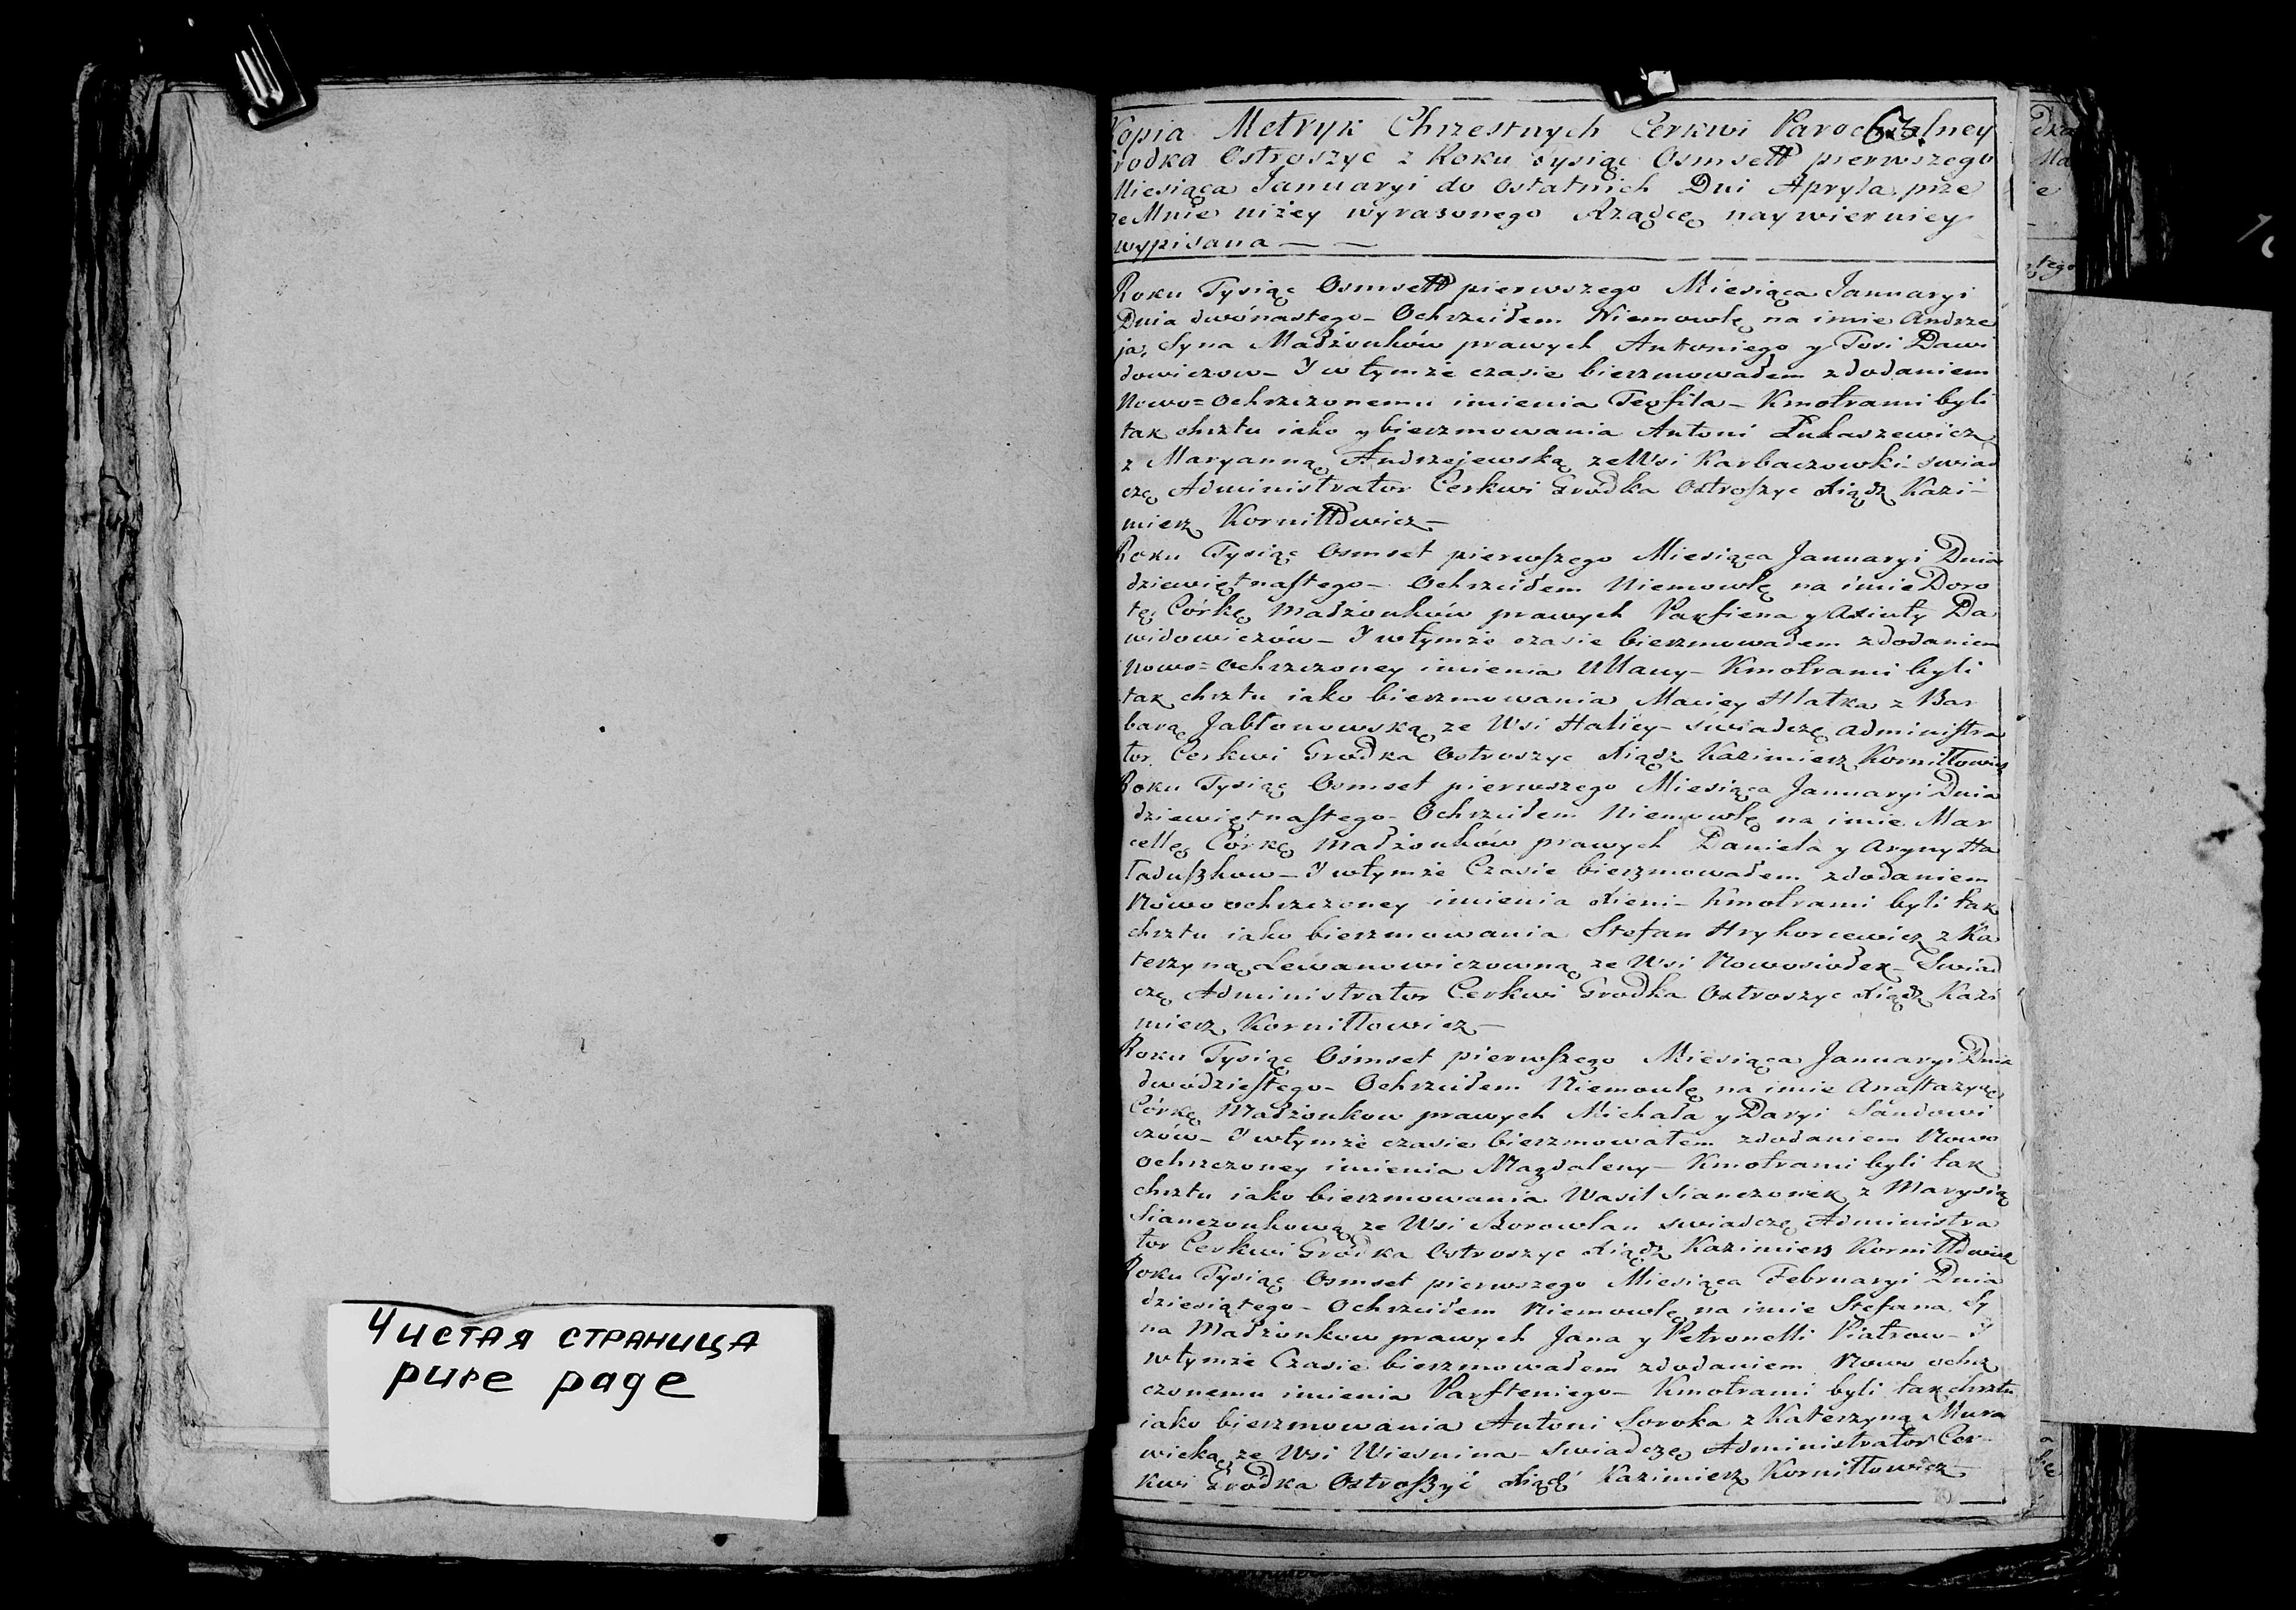 Чистая страница
pure page
63.
Kopia Metryk Chrzestnych Cerkwi Parochialney
Grodka Ostroszyc z Roku Tysiąc Osmsett pierwszego
Miesiąca Januaryi do ostatnich Dni Apryla prze
ze Mnie niżey wyrazonego Rządcę naywierniey
wypisana — —
Roku Tysiąc Osmsett pierwszego Miesiąca Januaryi
Dnia dwónastego – Ochrzciłem Niemowlę na imie Andrze
ja, Syna Małżonków prawych Antoniego y Tosi Dawi
dowiczow – Y w tymże czasie bierzmowałem z dodaniem
Nowo=Ochrzczonemu imienia Teofila – Kmotrami byli
tak chrztu iako y bierzmowania Antoni Łukaszewicz
z Maryanną Andrzejewską ze Wsi Karbaczowki – swiad
czę Administrator Cerkwi Grodka Ostroszyc Xiądz Kazi-
mierz Korniłłowicz –
Roku Tysiąc Osmset pierwszego Miesiąca Januaryi Dnia
dziewiętnastego – Ochrzciłem Niemowlę na imie Doro
tę Córkę Małżonków prawych Parfiena y Axiuty Da
widowiczów – Y w tymże czasie bierzmowałem z dodaniem
Nowo=ochrzczoney imienia Ullany – Kmotrami byli
tak chrztu iako bierzmowania Maciey Hlatka z Bar
barą Jabłonowską ze Wsi Halicy – swiadczę Administra
tor Cerkwi Grodka Ostroszyc Xiądz Kazimierz Korniłłowicz
Roku Tysiąc Osmset pierwszego Miesiąca Januaryi Dnia
dziewiętnastego – Ochrzciłem Niemowlę na imie Mar
cellę Córkę Małżonków prawych Daniela y Aryny Ha
ładuszkow – Y w tymże Czasie bierzmowałem z dodaniem
Nowo ochrzczoney imienia Xieni – Kmotrami byli tak
chrztu iako bierzmowania Stefan Hrykorcewicz z Ka
terzyną Lewanowiczowną ze Wsi Nowosiołek – Swiad
czę Administrator Cerkwi Grodka Ostroszyc Xiądz Kazi
mierz Korniłłowicz –
Roku Tysiąc Osmset pierwszego Miesiąca Januaryi Dnia
dwódziestego – Ochrzciłem Niemowlę na imie Anastazyę
Córkę Małżonkow prawych Michała y Daryi Sandowi
czów – Y w tymże czasie bierzmowałem z dodaniem Nowo
ochrzczoney imienia Magdaleny – Kmotrami byli tak
chrztu iako bierzmowania Wasil Sianczonek z Marysią
Sianczonkową ze Wsi Borowlan swiadczę Administra
tor Cerkwi Grodka Ostroszyc Xiądz Kazimierz Korniłłowicz
Roku Tysiąc Osmset pierwszego Miesiąca Februaryi Dnia
dziesiątego – Ochrzciłem Niemowlę na imie Stefana Sy
na Małżonkow prawych Jana y Petronelli Piatrow – Y
w tymże Czasie bierzmowałem z dodaniem Nowo ochrz
czonemu imienia Parfteniego – Kmotrami byli tak chrztu
iako bierzmowania Antoni Soroka z Katerzyną Mura
wieką ze Wsi Wiesnina – swiadczę Administrator Cer-
kwi Grodka Ostroszyc Xiądz Kazimierz Korniłłowicz –